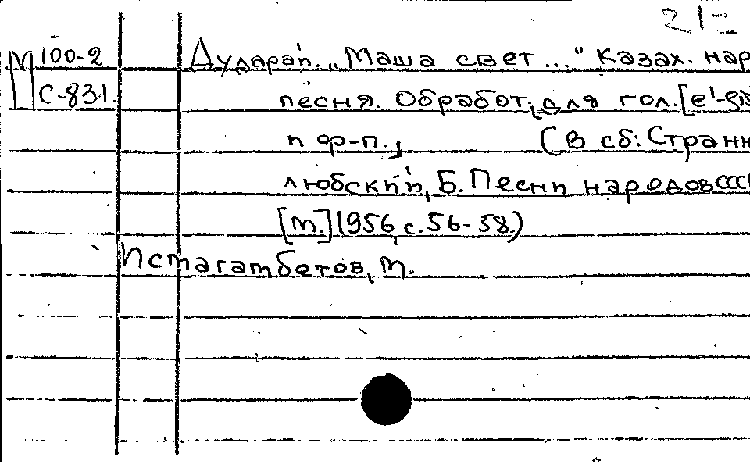 21
М 100-2 Дударай. „Маша свет..." Казах. нар
С-831. песня. Обработ. для гол. [e'-
и ф-п., (В сб: Странн
любский, Б. Песни народов СССР
[М.] 1956, с. 56-58.)
Истагатбетов, М.